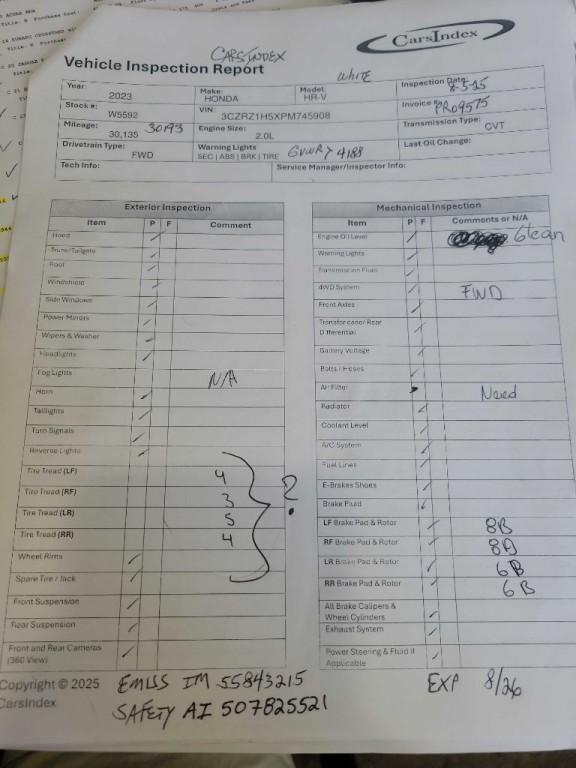 CarsIndex
CARSINDEX
Vehicle Inspection Report
WHITE
Year: 2023 Make: HONDA Model: HR-V Inspection Date: 8-5-25
Stock #: W5592 VIN: 3CZRZ1H5XPM745908 Invoice #: PRO9575
Mileage: 30,135 30193 Engine Size: 2.0L Transmission Type: CVT
Drivetrain Type: FWD Warning Lights SEC | ABS | BRK | TIRE GVWR 7 4188 Last Oil Change:
Tech Info: Service Manager/Inspector Info:
Exterior Inspection
Item P F Comment
Hood
Trunk/Tailgate
Roof
Windshield
Side Windows
Power Mirrors
Wipers & Washer
Headlights
Fog Lights N/A
Horn
Taillights
Turn Signals
Reverse Lights
Tire Tread (LF) 4
Tire Tread (RF) 3
Tire Tread (LR) 5
Tire Tread (RR) 4
?
Wheel Rims
Spare Tire / Jack
Front Suspension
Rear Suspension
Front and Rear Cameras
(360 View)
Mechanical Inspection
Item P F Comments or N/A
Engine Oil Level
Warning Lights
Transmission Fluid
4WD System FWD
Front Axles
Transfer case/ Rear
Differential
Battery Voltage
Belts / Hoses
Air Filter Need
Radiator
Coolant Level
A/C System
Fuel Lines
E-Brakes Shoes
Brake Fluid
LF Brake Pad & Rotor 8B
RF Brake Pad & Rotor
LR Brake Pad & Rotor 6B
RR Brake Pad & Rotor 6B
All Brake Calipers &
Wheel Cylinders
Exhaust System
Power Steering & Fluid if
Applicable
Copyright © 2025
CarsIndex
EMISS IM 55843215 EXP 8/26
SAFETY AI 507825521